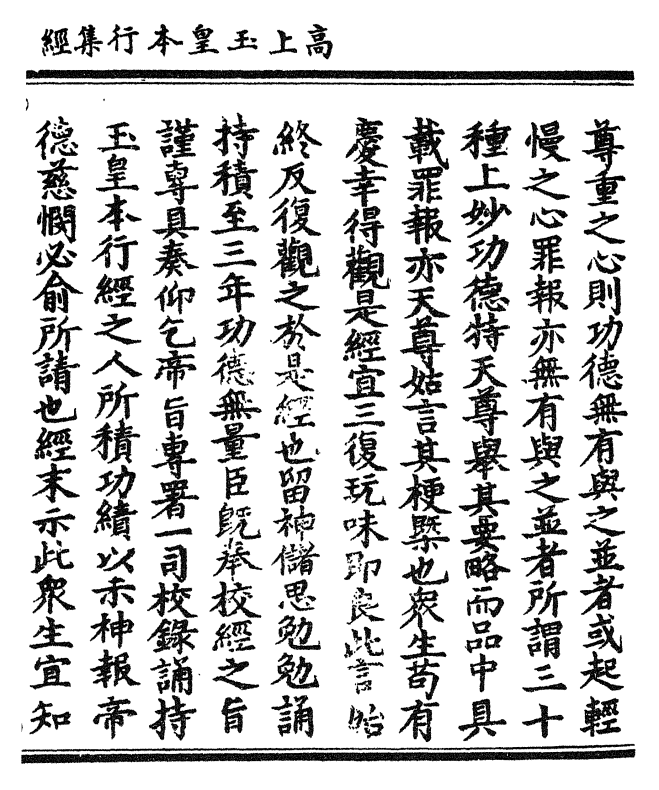 高上玉皇本行集經
尊重之心則功德無有與之並者或起輕
慢之心罪報亦無有與之並者所謂三十
種上妙功德特天尊舉其要略而品中具
載罪報亦天尊姑言其梗槩也衆生苟有
慶幸得觀是經宜三復玩味即良此言始
終反復觀之於是經也留神儲思勉勉誦
持積至三年功德無量臣旣奉校經之旨
謹專具奏仰乞帝旨專署一司校錄誦持
玉皇本行經之人所積功績以示神報帝
德慈憫必俞所請也經末示此衆生宜知